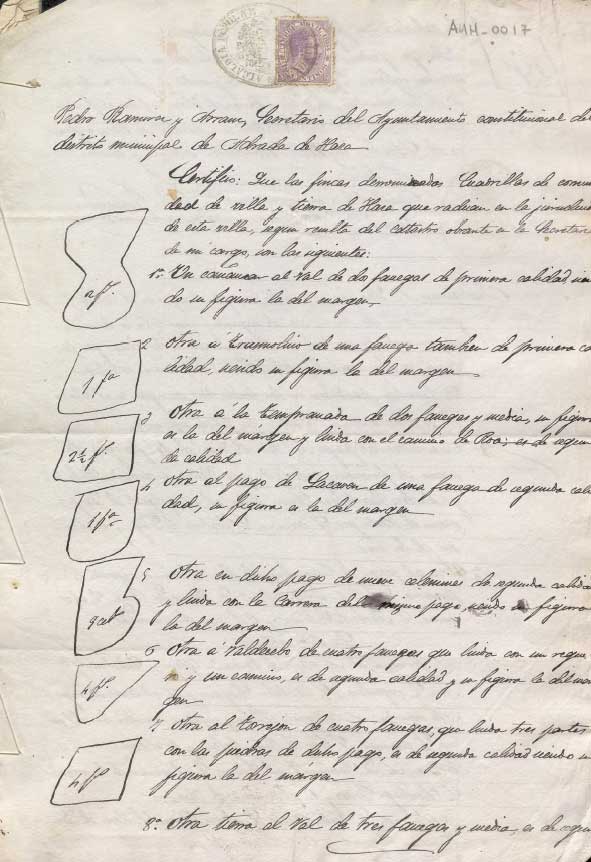 AHH-0017
Pedro Ramirez y Arranz, Secretario del Ayuntamiento constitucional del
distrito municipal de Adrada de Haza
Certifico: Que las fincas denominadas Cuadrillas de comuni
dad de villa y tierra de Haza que radican en la
de esta villa, segun resulta del catastro obrante en la Secretaria
de mi cargo, son las siguientes:
1ª Un cañamar al Val de dos fanegas de primera calidad, sien
do su figura la del margen,
2 fs.
2 Otra á de una fanega tambien de primera ca
lidad, siendo su figura la del margen
1 fa
3 Otra á la Tempranada de dos fanegas y media, su figura
es la del márgen y linda con el camino de Roa; es de segun
da calidad
2½ fs.
4 Otra al pago de de una fanega de segunda cali
dad, su figura es la del margen
1 fa
5 Otra en dicho pago de nueve celemines de segunda calidad
y linda con la Carrera del mismo pago, siendo su figura
la del margen
9 cel
6 Otra á de cuatro fanegas que linda con un regue
ro y un camino, es de segunda calidad y su figura la del mar
gen
4 fs.
7 Otra al Torrejon de cuatro fanegas, que linda tres partes
con las piedras de dicho pago, es de segunda calidad siendo su
figura la del márgen
4 fs
8ª Otra tierra al Val de tres fanegas y media, es de segun